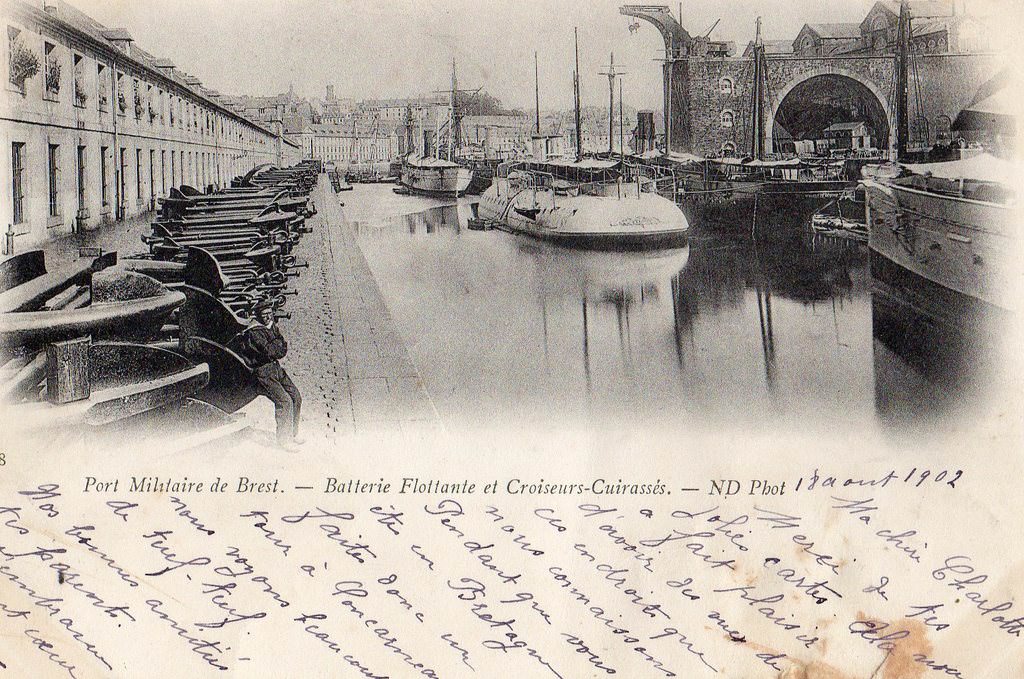 8
Port Militaire de Brest. — Batterie Flottante et Croiseurs-Cuirassés. — ND Phot
18 aout 1902
Ma chère Charlotte
Merci de tes
jolies cartes cela nous
a fait plaisir
d'avoir des vues de
ces endroits que
nous connaissons
Pendant que vous
êtes en Bretagne
faites donc un
tour à Concarneau
nous voyons beaucoup
de teuf-teuf.
Nos bonnes amitiés
tes parents.